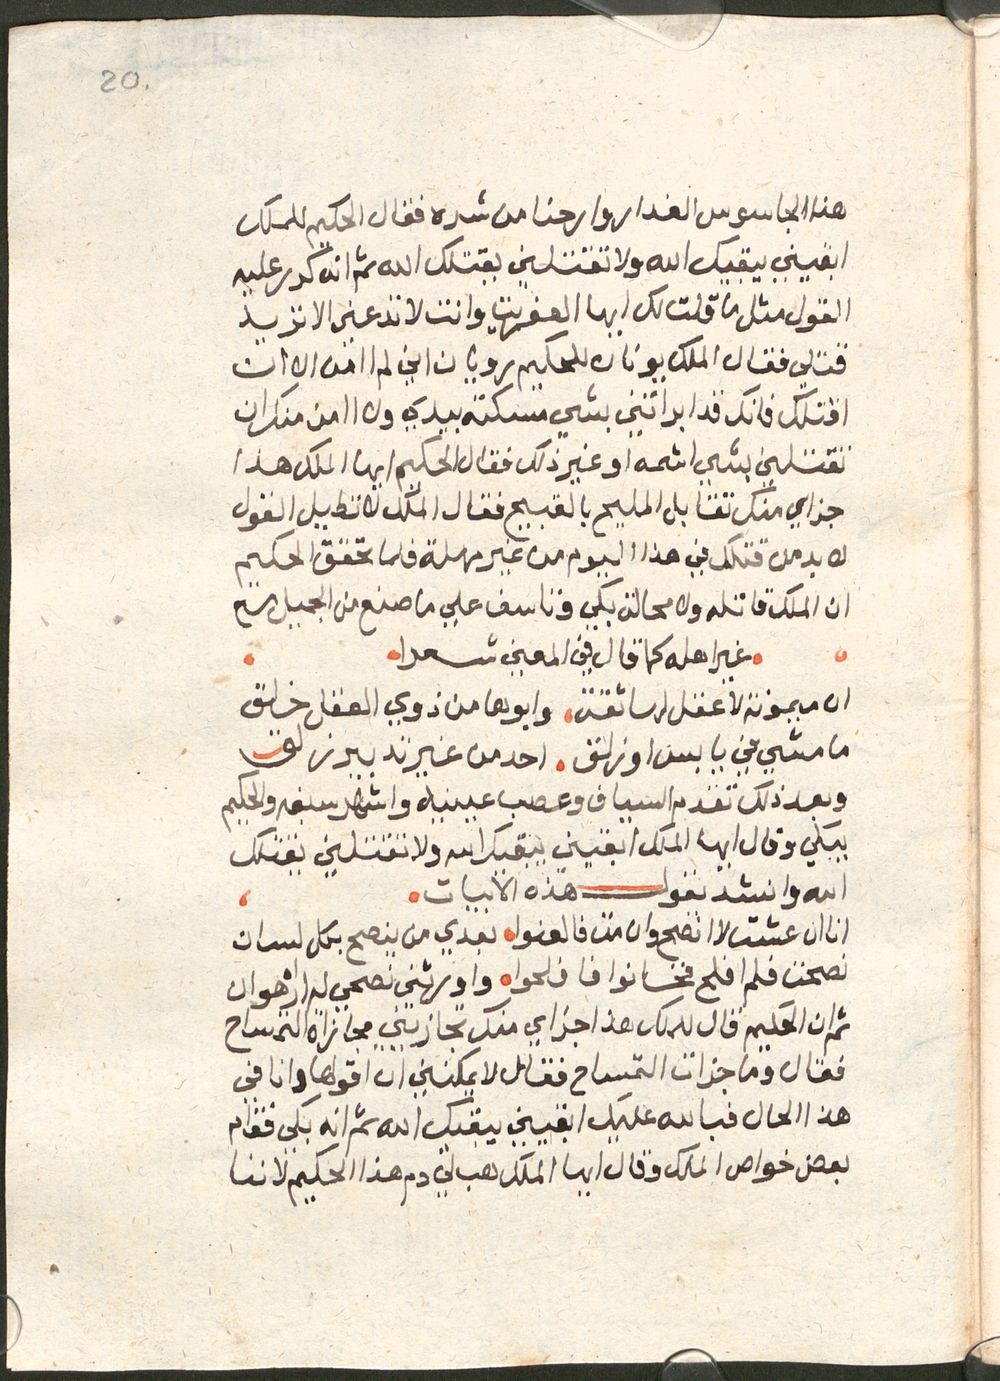 20.
هذا الجاسوس الغدار وارحنا من شره فقال الحكيم للملك
ابقيني يبقيك الله ولا تقتلني يقتلك الله ثم انه كرر عليه
القول مثل ما قلت لك ايها العفريت وانت لا تدعني الا تريد
قتلي فقال الملك يونان للحكيم رويان اني لم اامن الا ان
اقتلك فانك قد ابراتني بشي مسكته بيدي ولا اامن منك ان
تقتلني بشي اشمه او غير ذلك فقال الحكيم ايها الملك هذا
جزاي منك تقابل المليح بالقبيح فقال الملك لا تطيل القول
لا بد من قتلك في هذا اليوم من غير مهلة فلما تحقق الحكيم
ان الملك قاتله ولا محالة بكي وتاسف علي ما صنع من الجميل مع
غير اهله كما قال في المعني شعرا
ان ميمونة لا عقل لها ثقة وابوها من ذوي العقل خلق
ما مشي في يابس او زلق احد من غير تدبير زلق
وبعد ذلك تقدم السياف وعصب عينيه واشهر سيفه والحكيم
يبكي وقال ايها الملك ابقيني يبقيك الله ولا تقتلني يقتلك
الله وانشد يقول هذه الابيات
انا ان عشت لا انصح وان مت فالعنوا بعدي من ينصح بكل لسان
نصحت فلم افلح فخانوا فافلحوا واورثني نصحي لدار هوان
ثم ان الحكيم قال للملك هذا جزاي منك تجازيني مجازاة التمساح
فقال وما جزات التمساح فقال لا يمكنني ان اقولها وانا في
هذا الحال فبالله عليك ابقيني يبقيك الله ثم انه بكي فقام
بعض خواص الملك وقال ايها الملك هب لي دم هذا الحكيم لاننا